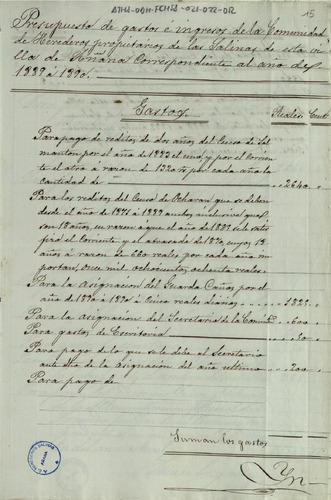 ATHA-DAH-FCHA-021-022-02
15
Presupuesto de gastos é ingresos de la Comunidad
de Herederos propietarios de las Salinas de esta vi-
lla de Añana correspondiente al año de
1889 á 1890.
Gastos Reales Cent
Para pago de reditos de dos años del Censo de Sal
manton por el año de 1888 el uno y por el corrien
te el otro a razon de 1320 rs por cada año la
cantidad de 2640
Para los reditos del Censo de Ocharan que se deben
desde el año de á ambos inclusive que
son 18 años, en razon á que el año de se le satis
fizo el corriente y el atrasado de 1870, cuyos 18
años á razon de 660 reales por cada año im
portan, once mil ochocientos ochenta reales
Para la asignacion del Guarda Caños por el
año de á á cinco reales diarios 1825
Para la asignacion del Secretario de la Comunid 600
Para gastos de Escritorio
Para pago de lo que se le debe al Secretario
de la asignacion del año ultimo 200
Para pago de
Suman los gastos